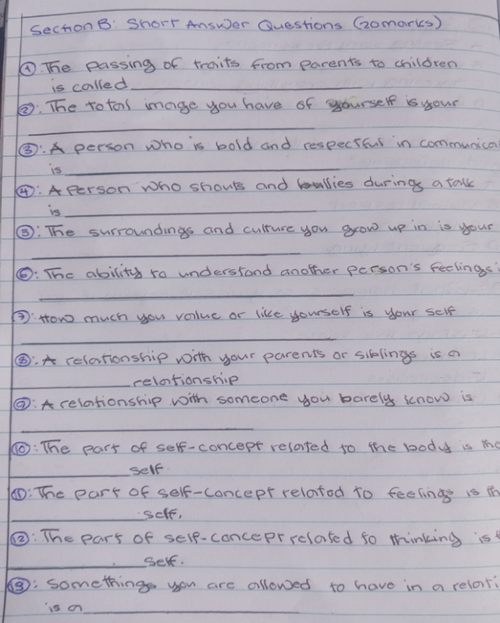 Section B: Short Answer Questions (20marks)
①: The passing of traits from parents to children
is called
②: The total image you have of yourself is your
③: A person who is bold and respectful in communica
is
④: A person who shouts and bullies durings a talk
is
⑤: The surroundings and culture you grow up in is your
⑥: The ability to understand another person's feelings i
⑦: How much you value or like yourself is your self
⑧: A relationship with your parents or siblings is a
relationship
⑨: A relationship with someone you barely know is
⑩: The part of self-concept related to the body is the
self.
⑪: The part of self-concept related to feelings is th
self.
⑫: The part of self-concept related to thinking is t
self.
⑬: Somethings you are allowed to have in a relati
is a